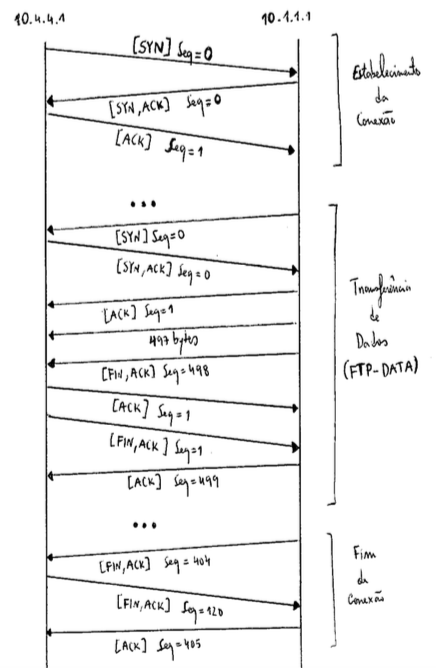 10.4.4.1 10.1.1.1
[SYN] Seq=0
[SYN, ACK] Seq=0
[ACK] Seq=1
Estabelecimento
da
Conexão
...
[SYN] Seq=0
[SYN, ACK] Seq=0
[ACK] Seq=1
497 bytes
[FIN, ACK] Seq=498
[ACK] Seq=1
[FIN, ACK] Seq=1
[ACK] Seq=499
Transferência
de
Dados
(FTP-DATA)
...
[FIN, ACK] Seq=404
[FIN, ACK] Seq=120
[ACK] Seq=405
Fim
de
Conexão